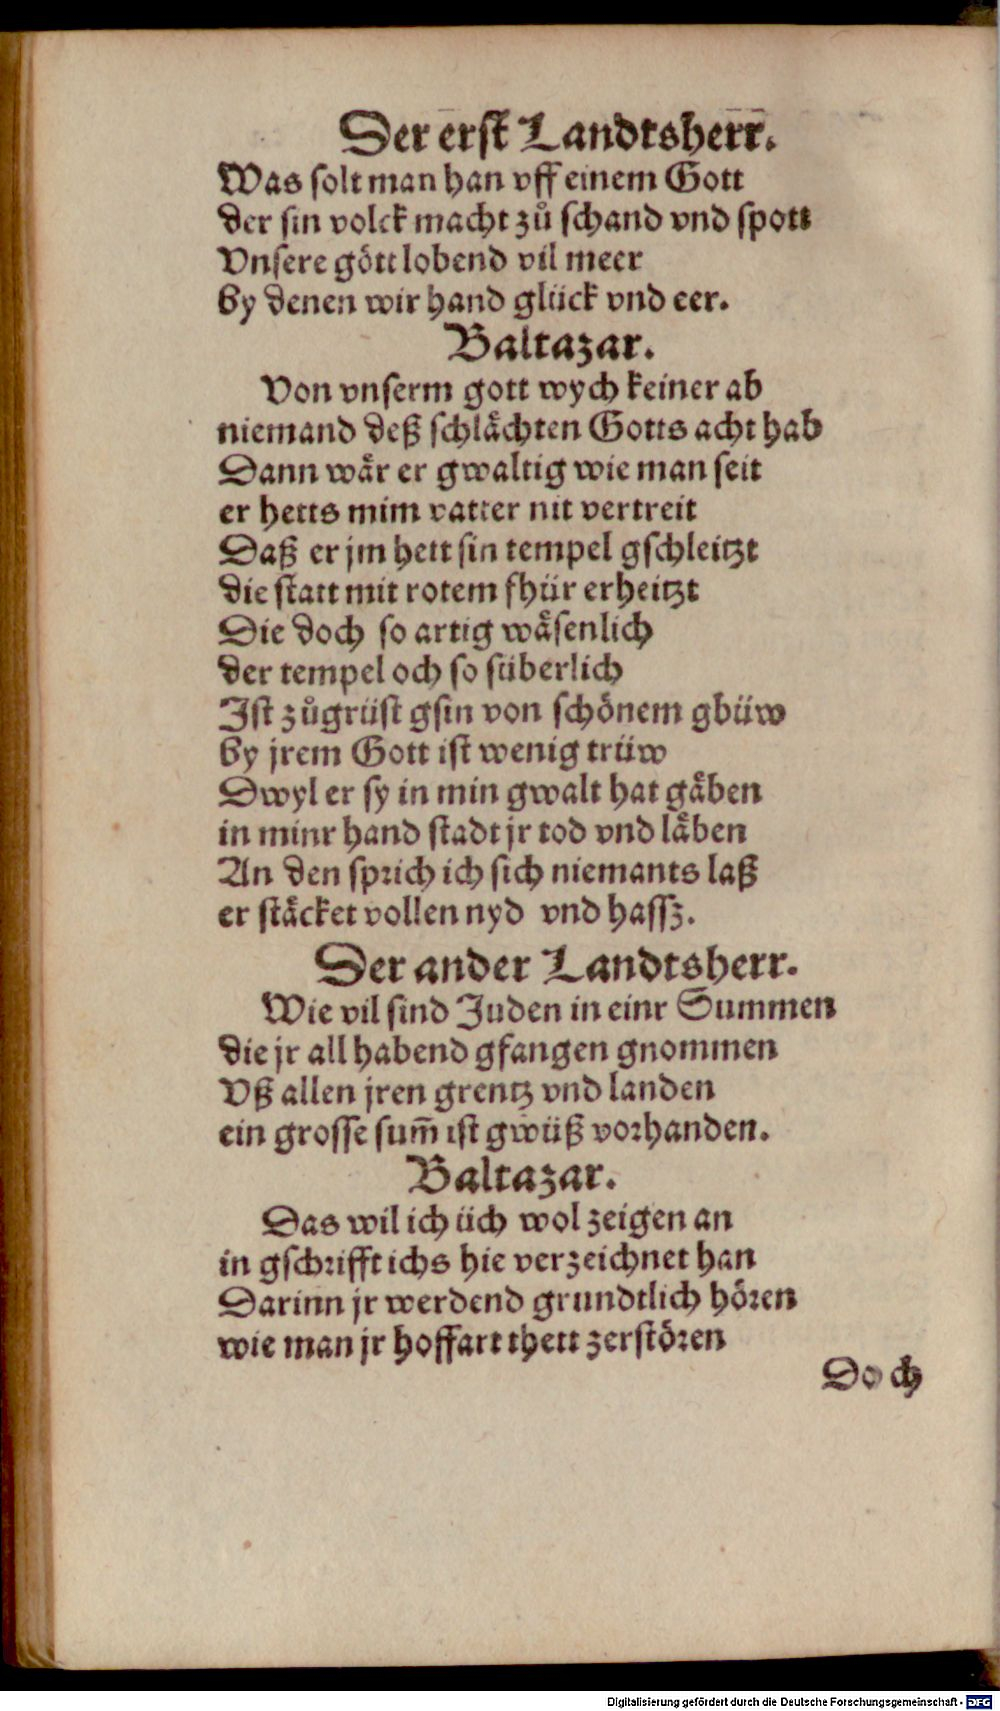 Der erst Landtsherr.
Was solt man han vff einem Gott
der sin volck macht zů schand vnd spott
Vnsere gött lobend vil meer
by denen wir hand glück vnd eer.
Baltazar.
Von vnserm gott wych keiner ab
niemand deß schlåchten Gotts acht hab
Dann wår er gwaltig wie man seit
er hetts mim vatter nit vertreit
Daß er jm hett sin tempel gschleitzt
die statt mit rotem fhür erheitzt
Die doch so artig wåsenlich
der tempel och so süberlich
Ist zůgrüst gsin von schönem gbüw
by jrem Gott ist wenig trüw
Dwyl er sy in min gwalt hat gåben
in minr hand stadt jr tod vnd låben
An den sprich ich sich niemants laß
er ståcket vollen nyd vnd hassz.
Der ander Landtsherr.
Wie vil sind Juden in einr Summen
die jr all habend gfangen gnommen
Vß allen jren grentz vnd landen
ein grosse sum̄ ist gwüß vorhanden.
Baltazar.
Das wil ich üch wol zeigen an
in gschrifft ichs hie verzeichnet han
Darinn jr werdend grundtlich hören
wie man jr hoffart thett zerstören
Doch
Digitalisierung gefördert durch die Deutsche Forschungsgemeinschaft - DFG